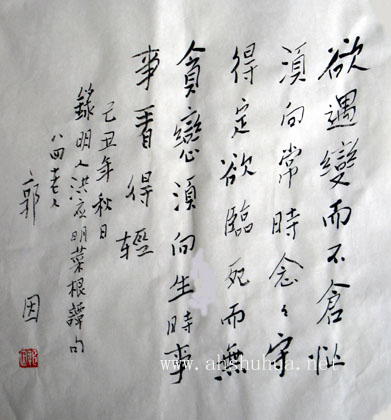 欲遇變而不倉忙
須向常時念々守
得定欲臨死而無
貪戀須向生時事
事看得輕
己丑年秋日
錄明人洪应明菜根譚句
八四老人
郭因
www.ahshuhua.net